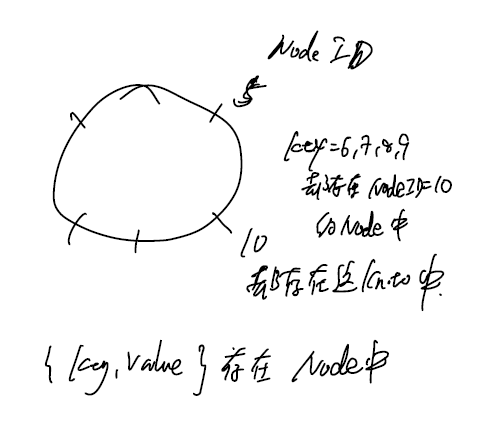 Node ID
5
key=6,7,8,9
都存在 NodeID=10
的Node中
10
都存在这 中.
{ key, value } 存在 Node中